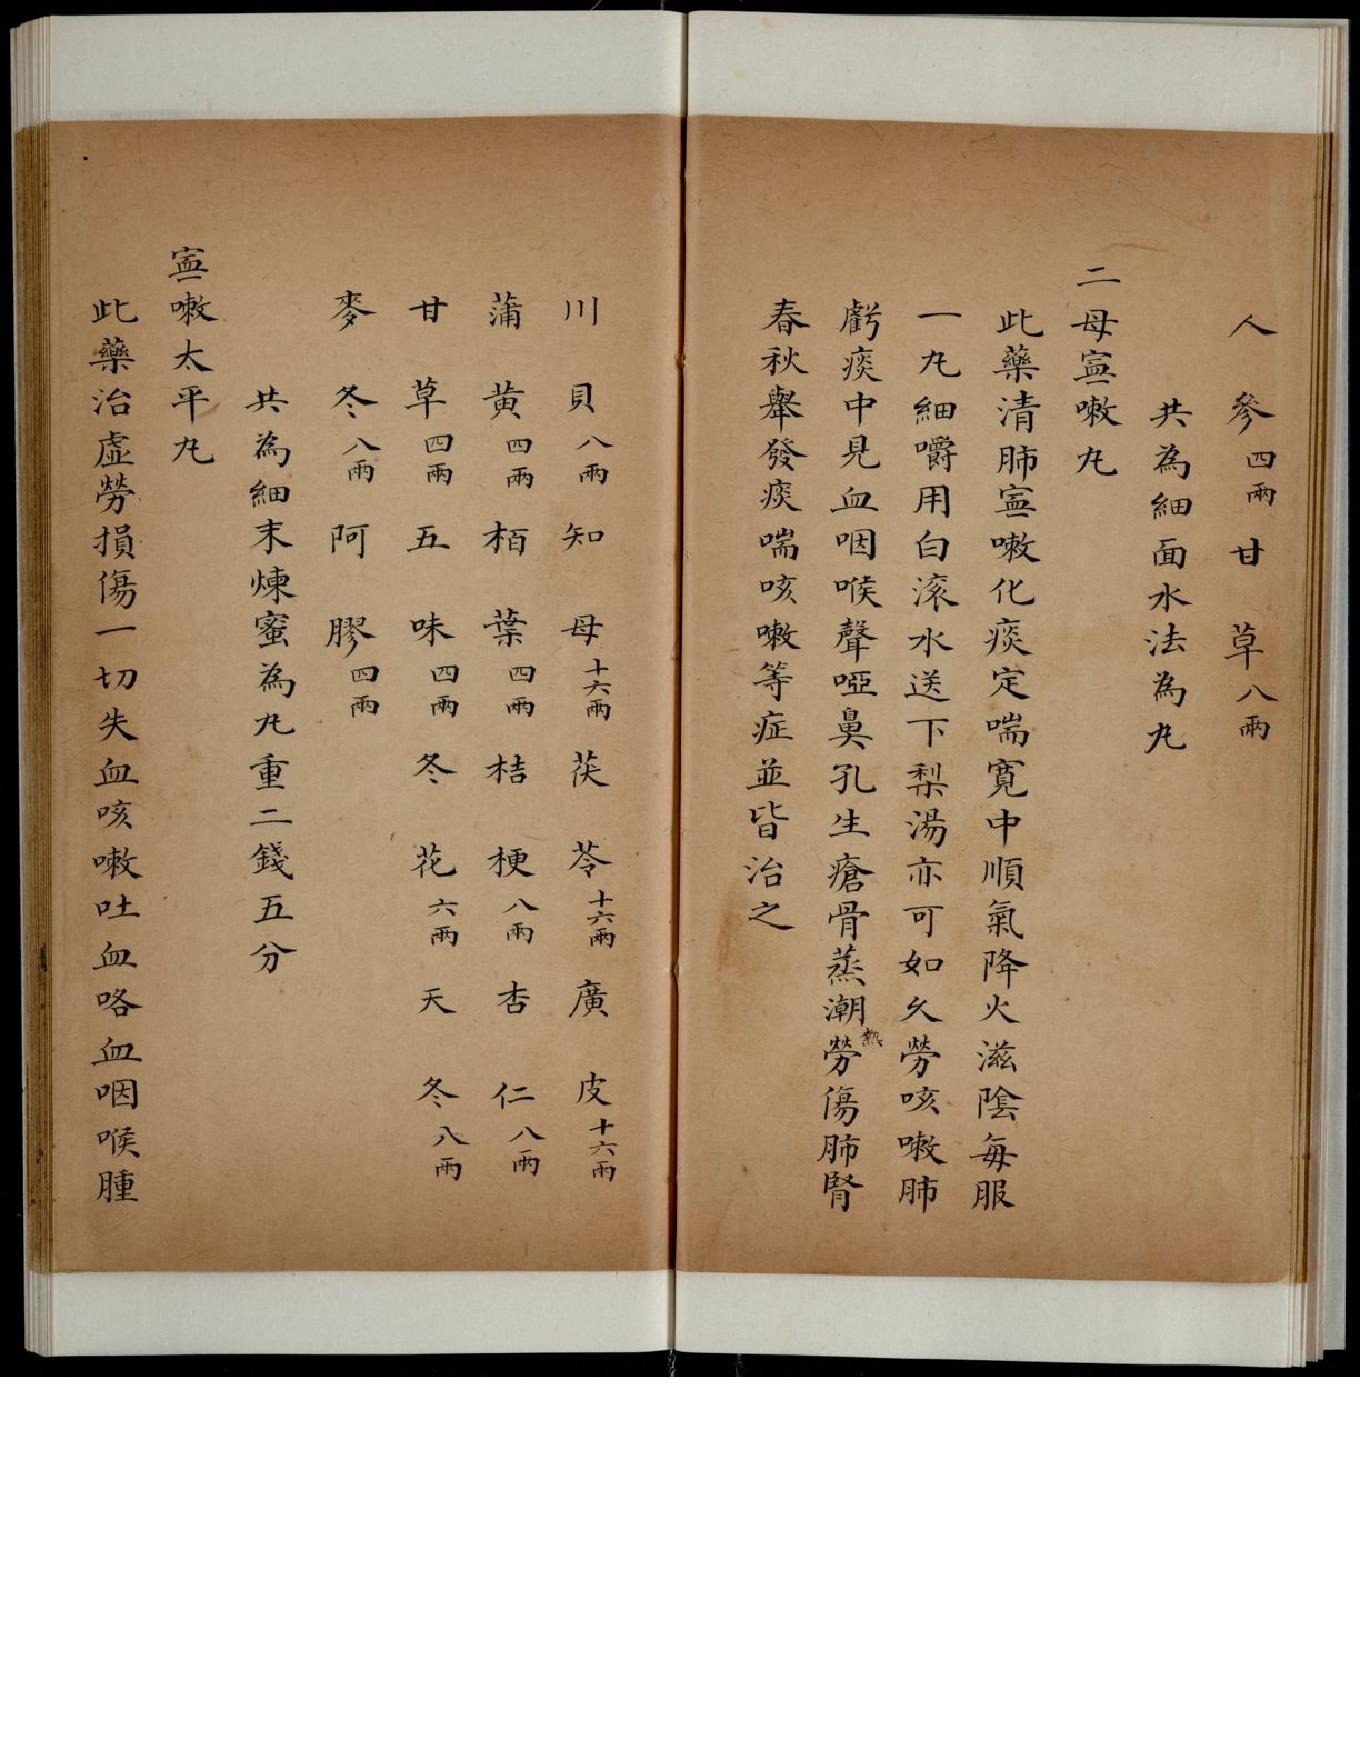 人參四兩甘草八兩
共為細面水法為丸
二母寍嗽丸
此藥清肺寍嗽化痰定喘寬中順氣降火滋陰每服
一丸細嚼用白滚水送下梨湯亦可如久勞咳嗽肺
虧痰中見血咽喉聲啞鼻孔生瘡骨蒸潮熱勞傷肺腎
春秋舉發痰喘咳嗽等症並皆治之
川貝八兩知母十六兩茯苓十六兩廣皮十六兩
蒲黄四兩栢葉四兩桔梗八兩杏仁八兩
甘草四兩五味四兩冬花六兩天冬八兩
麥冬八兩阿膠四兩
共為細末煉蜜為丸重二錢五分
寍嗽太平丸
此藥治虛勞損傷一切失血咳嗽吐血咯血咽喉腫